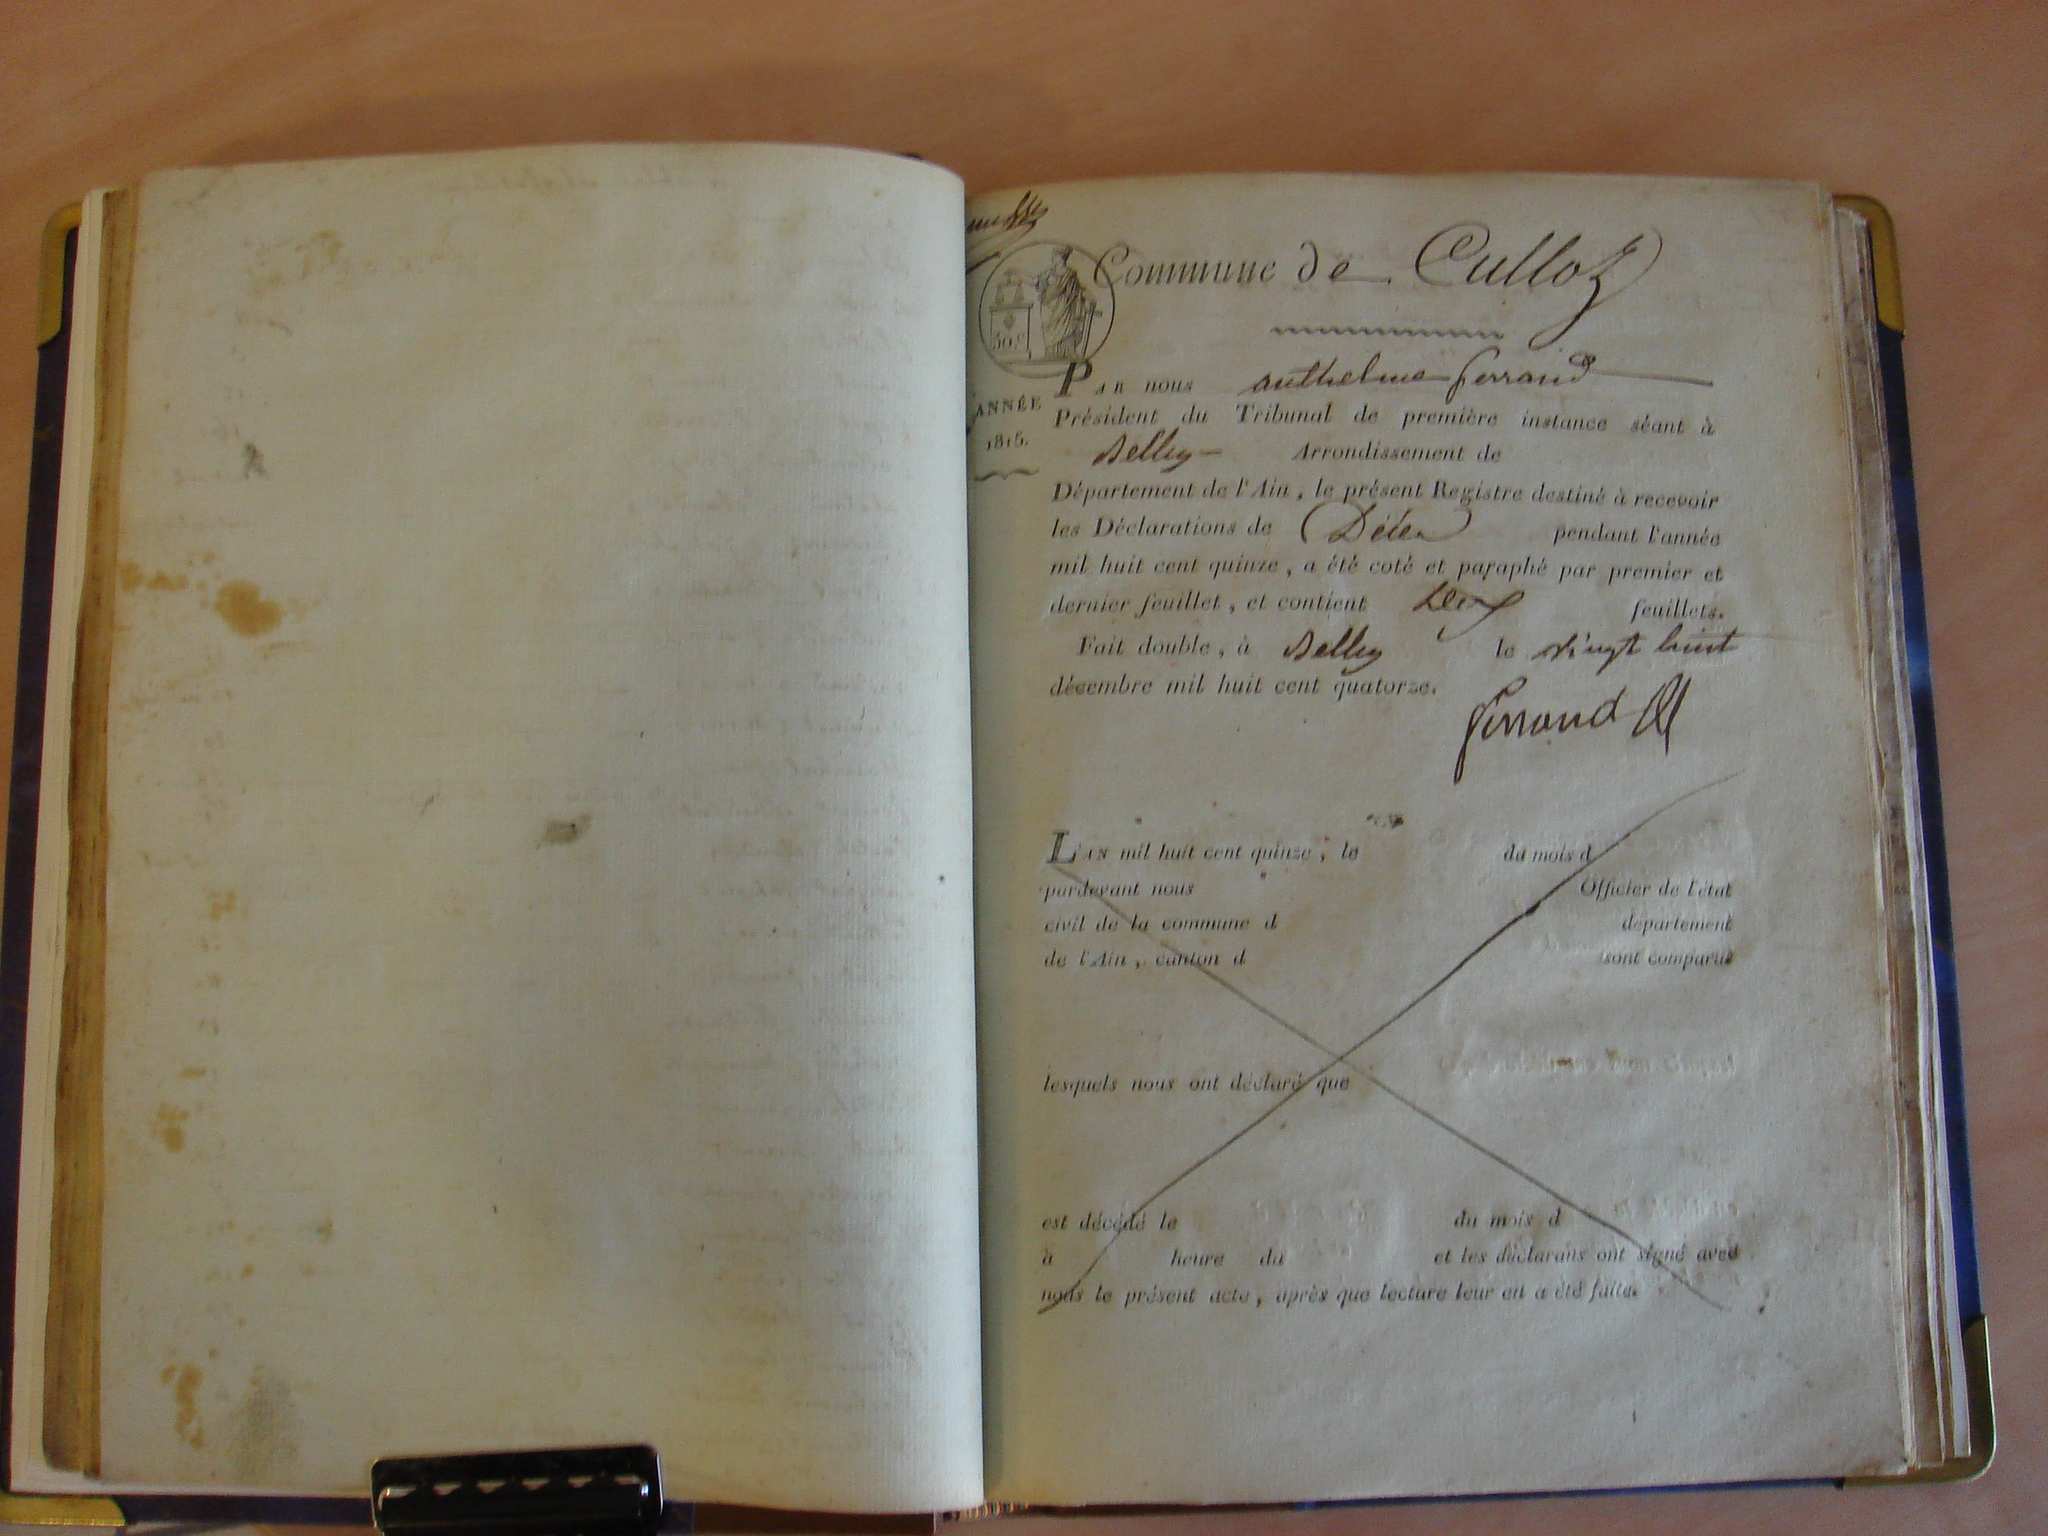 Commune de Culloz
50.c
ANNÉE
1815.
PAR nous anthelme ferrand
Président du Tribunal de première instance séant à
Belley Arrondissement de
Département de l'Ain, le présent Registre destiné à recevoir
les Déclarations de Décès pendant l'année
mil huit cent quinze, a été coté et paraphé par premier et
dernier feuillet, et contient feuillets.
Fait double, à Belley le vingt huit
décembre mil huit cent quatorze.
ferrand
L'AN mil huit cent quinze, le du mois d
pardevant nous Officier de l'état
civil de la commune d département
de l'Ain, canton d sont comparus
lesquels nous ont déclaré que
est décédé le du mois d
à heure du et les déclarans ont signé avec
nous le présent acte, après que lecture leur en a été faite.